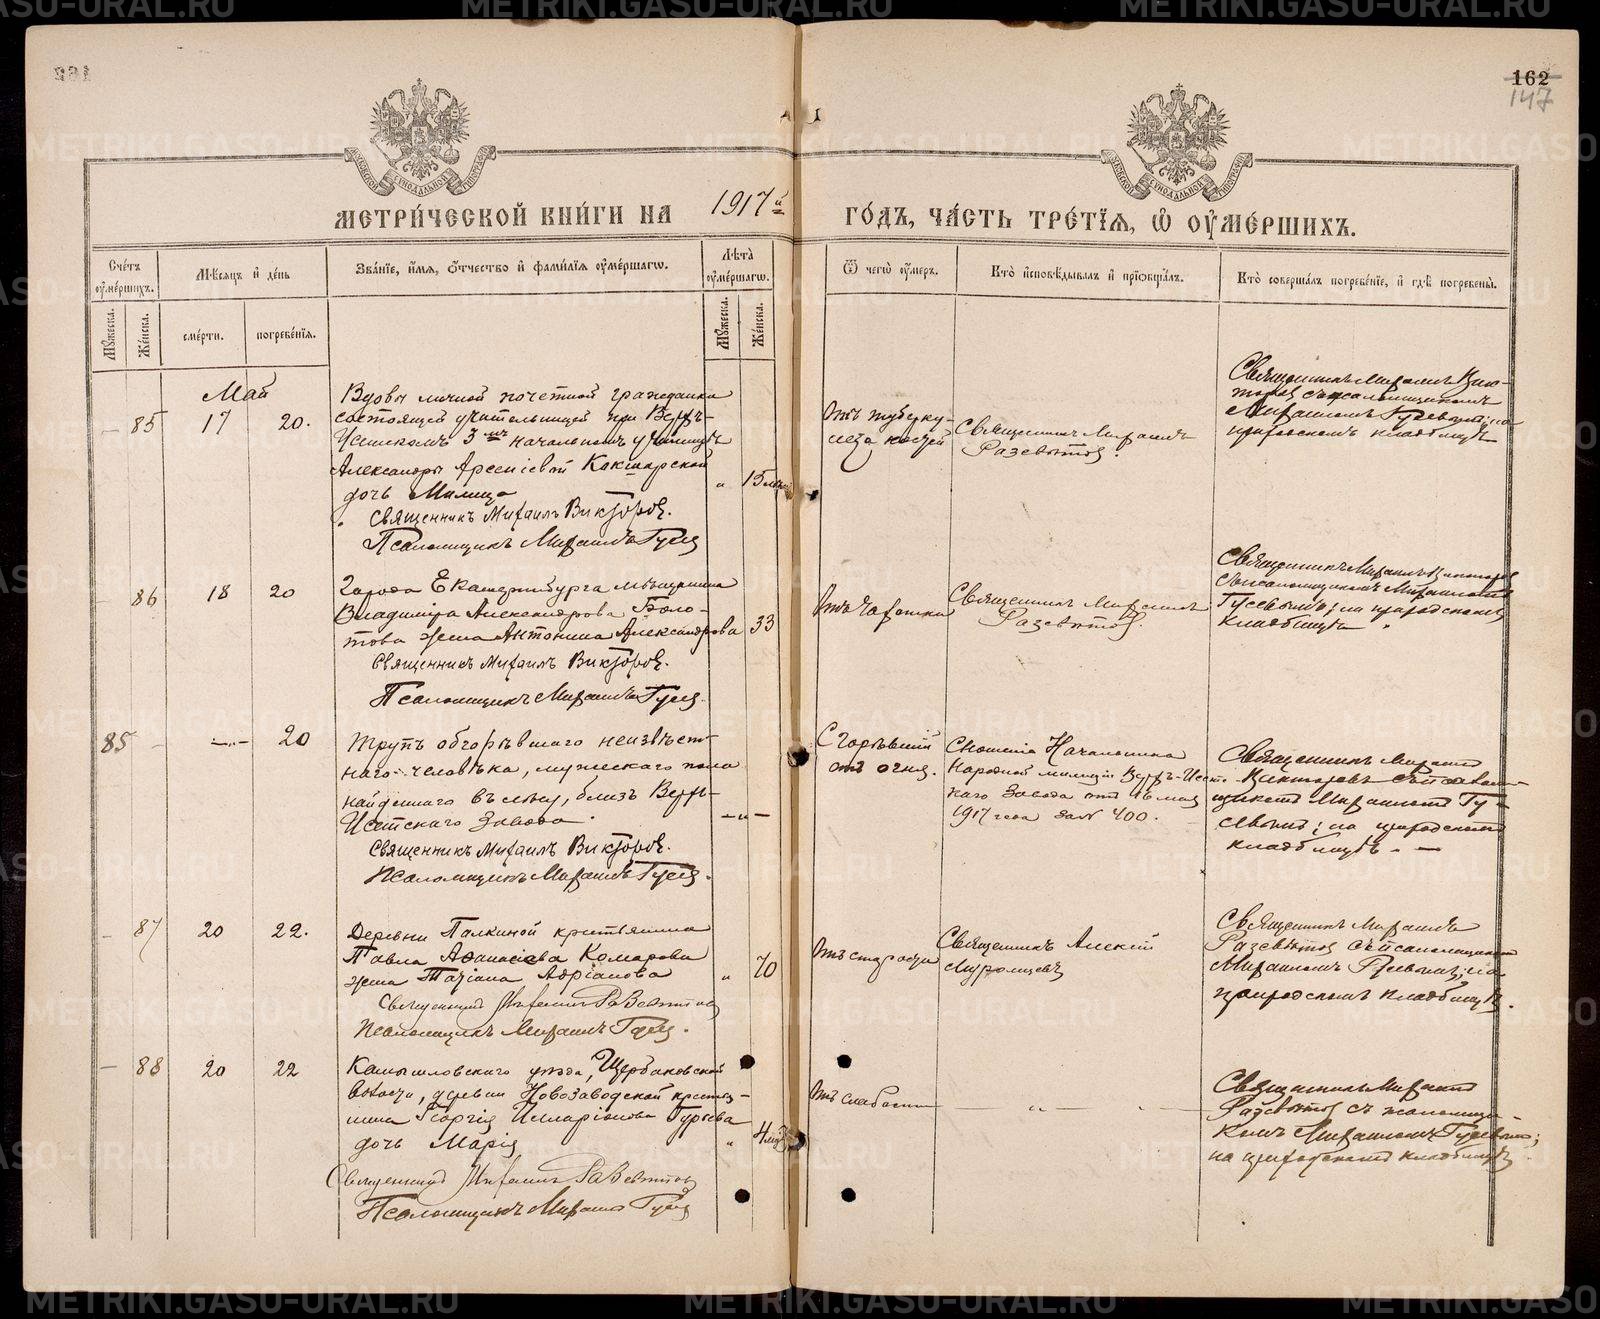 162
147
МЕТРИ́ЧЕСКОЙ КНИ́ГИ НА 1917 й ГО́ДЪ, ЧА́СТЬ ТРЕ́ТЇѦ, Ѡ҆ ОУ҆МЕ́РШИХЪ.
Сче́тъ оу҆ме́ршихъ.
Мꙋ́жеска.
Же́нска.
Мѣ́сѧцъ и҆ де́нь
сме́рти.
погребе́нїѧ.
Зва́нїе, и҆́мѧ, ѻ҆́тчество и҆ фами́лїѧ оу҆ме́ршагѡ.
Лѣ́та оу҆ме́ршагѡ.
Мꙋ́жеска.
Же́нска.
Ѿ чегѡ̀ оу҆́меръ.
Кто̀ и҆сповѣ́дывалъ и҆ прїѡбща́лъ.
Кто̀ соверша́лъ погребе́нїе, и҆ гдѣ̀ погребены̀.
Май
— 85 17 20.
Вдовы личной почетной гражданки
состоящей учительницей при Верхъ-
Исетскомъ 3мъ начальномъ училищѣ
Александры Арсеніевой Кокшарской
дочь Милица
" 15 лѣтъ
Священникъ Михаилъ Викторов.
Псаломщикъ Михаилъ Гусев
Отъ туберку-
леза костей
Священникъ Михаилъ
Разсвѣтов.
Священникъ Михаилъ Вик-
торов съ псаломщикомъ
Михаиломъ Гусевымъ; на
приходскомъ кладбищѣ
86 18 20
Города Екатеринбурга мѣщанина
Владиміра Александрова Боло-
това жена Антонина Александрова
33
Священникъ Михаилъ Викторов.
Псаломщикъ Михаилъ Гусев.
Отъ чахотки
Священникъ Михаилъ
Разсвѣтов.
Священникъ Михаилъ Викторов
съ псаломщикомъ Михаиломъ
Гусевымъ; на приходскомъ
кладбищѣ
85 — —"— 20
Трупъ обгорѣвшаго неизвѣст-
наго человѣка, мужескаго пола
найденнаго въ лѣсу, близъ Верхъ-
Исетскаго Завода.
—"—
Священникъ Михаилъ Викторов.
Псаломщикъ Михаилъ Гусев.
Сгорѣвший
отъ огня.
Сношеніе Начальника
Народной милиціи Верхъ-Исетс-
каго Завода отъ 16 мая
1917 года за № 400.
Священникъ Михаилъ
Викторовъ съ псалом-
щикомъ Михаиломъ Гу-
севымъ; на приходскомъ
кладбищѣ. —
— 87 20 22.
Деревни Палкиной крестьянина
Павла Аѳанасіева Комарова
жена Татіана Адріанова
" 70
Священникъ Михаилъ Разсвѣтов
Псаломщикъ Михаилъ Гусев.
Отъ старости
Священникъ Алексій
Муромцевъ
Священникъ Михаилъ
Разсвѣтов съ псаломщикомъ
Михаиломъ Гусевымъ; на
приходскомъ кладбищѣ.
— 88 20 22
Камышловскаго уѣзда, Щербаковской
волости, деревни Новозаводской кресть-
янина Георгія Илларіонова Гурьева
дочь Марія
" 4 мѣс
Священникъ Михаилъ Разсвѣтов
Псаломщикъ Михаилъ Гусев
Отъ слабости
—"— —
Священникъ Михаилъ
Разсвѣтов съ псаломщи-
комъ Михаиломъ Гусевымъ;
на приходскомъ кладбищѣ.
METRIKI.GASO-URAL.RU